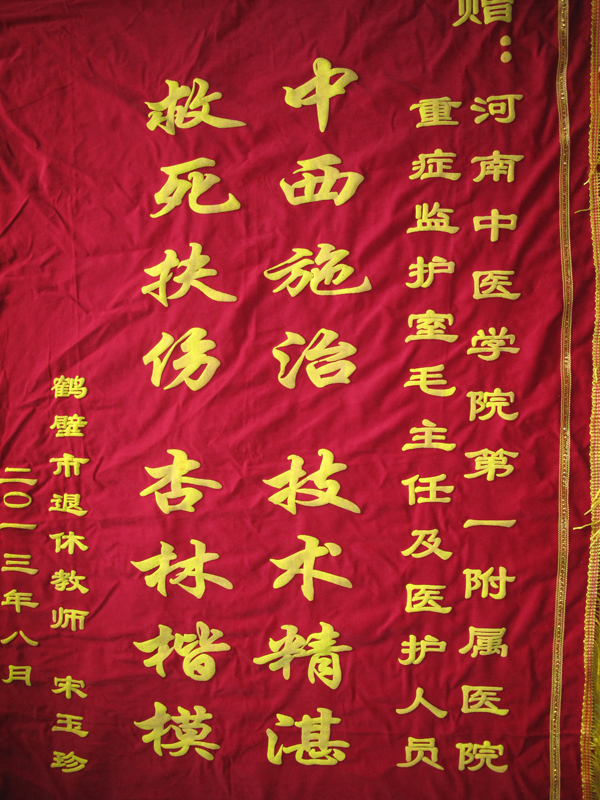 赠：
河南中医学院第一附属医院
重症监护室毛主任及医护人员
中西施治 技术精湛
救死扶伤 杏林楷模
鹤壁市退休教师 宋玉珍
二〇一三年八月